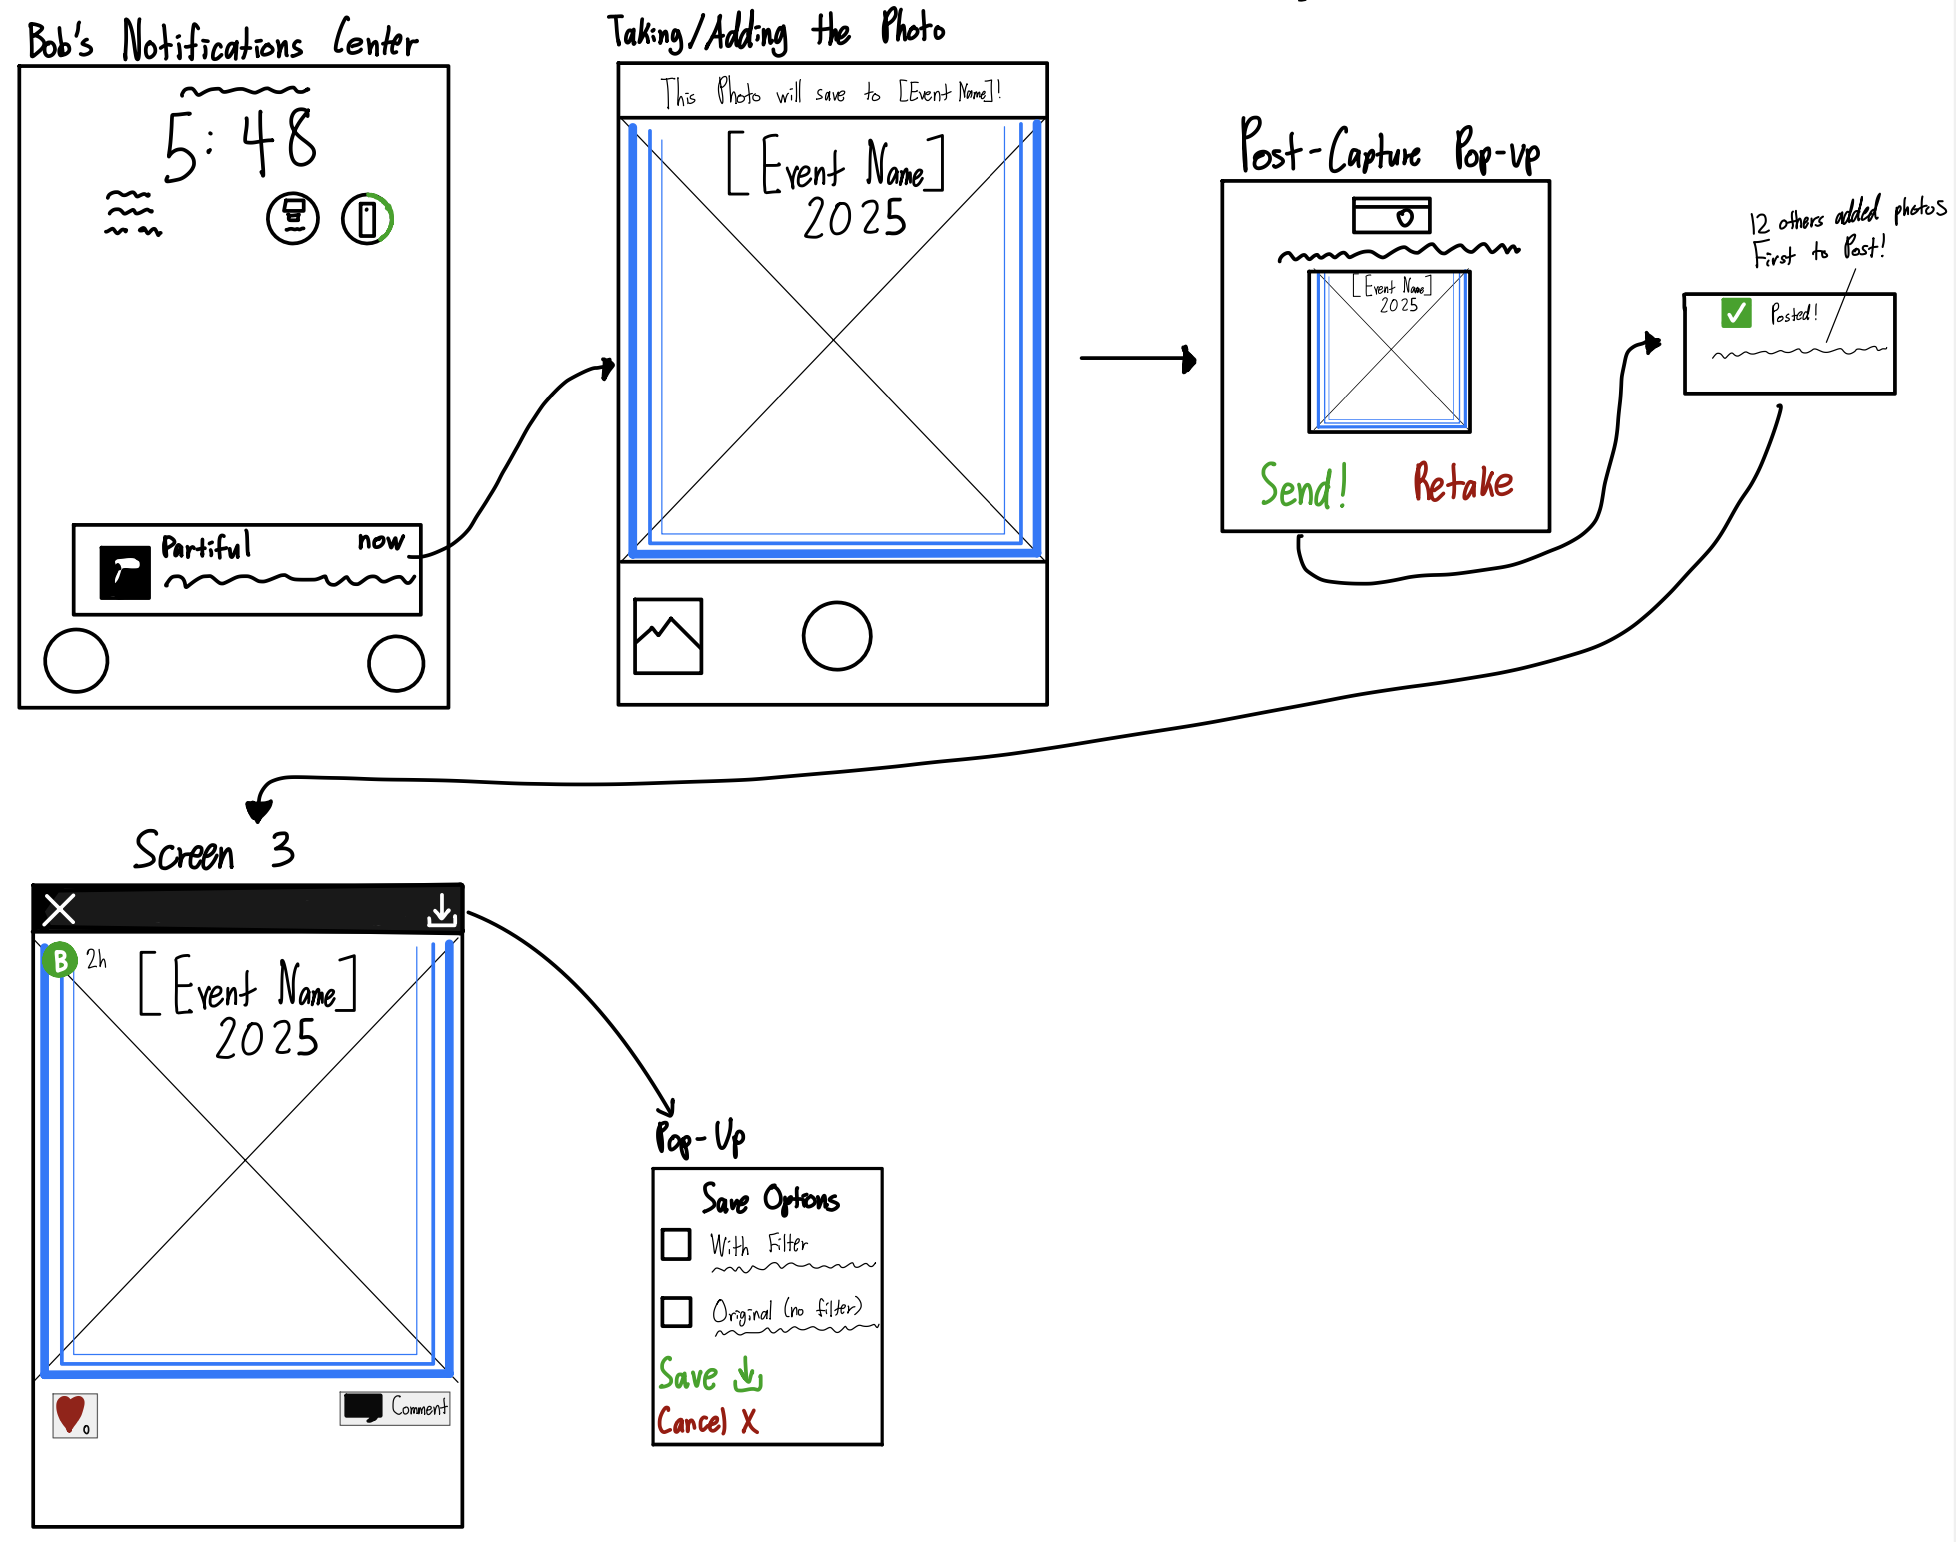 Bob's Notifications Center
5:48
Partiful now
Taking/Adding the Photo
This Photo will save to [Event Name]!
[Event Name]
2025
Post-Capture Pop-up
[Event Name]
2025
Send! Retake
12 others added photos
First to Post!
Posted!
Screen 3
B 2h
[Event Name]
2025
0
Comment
Pop-Up
Save Options
With Filter
Original (no filter)
Save
Cancel X